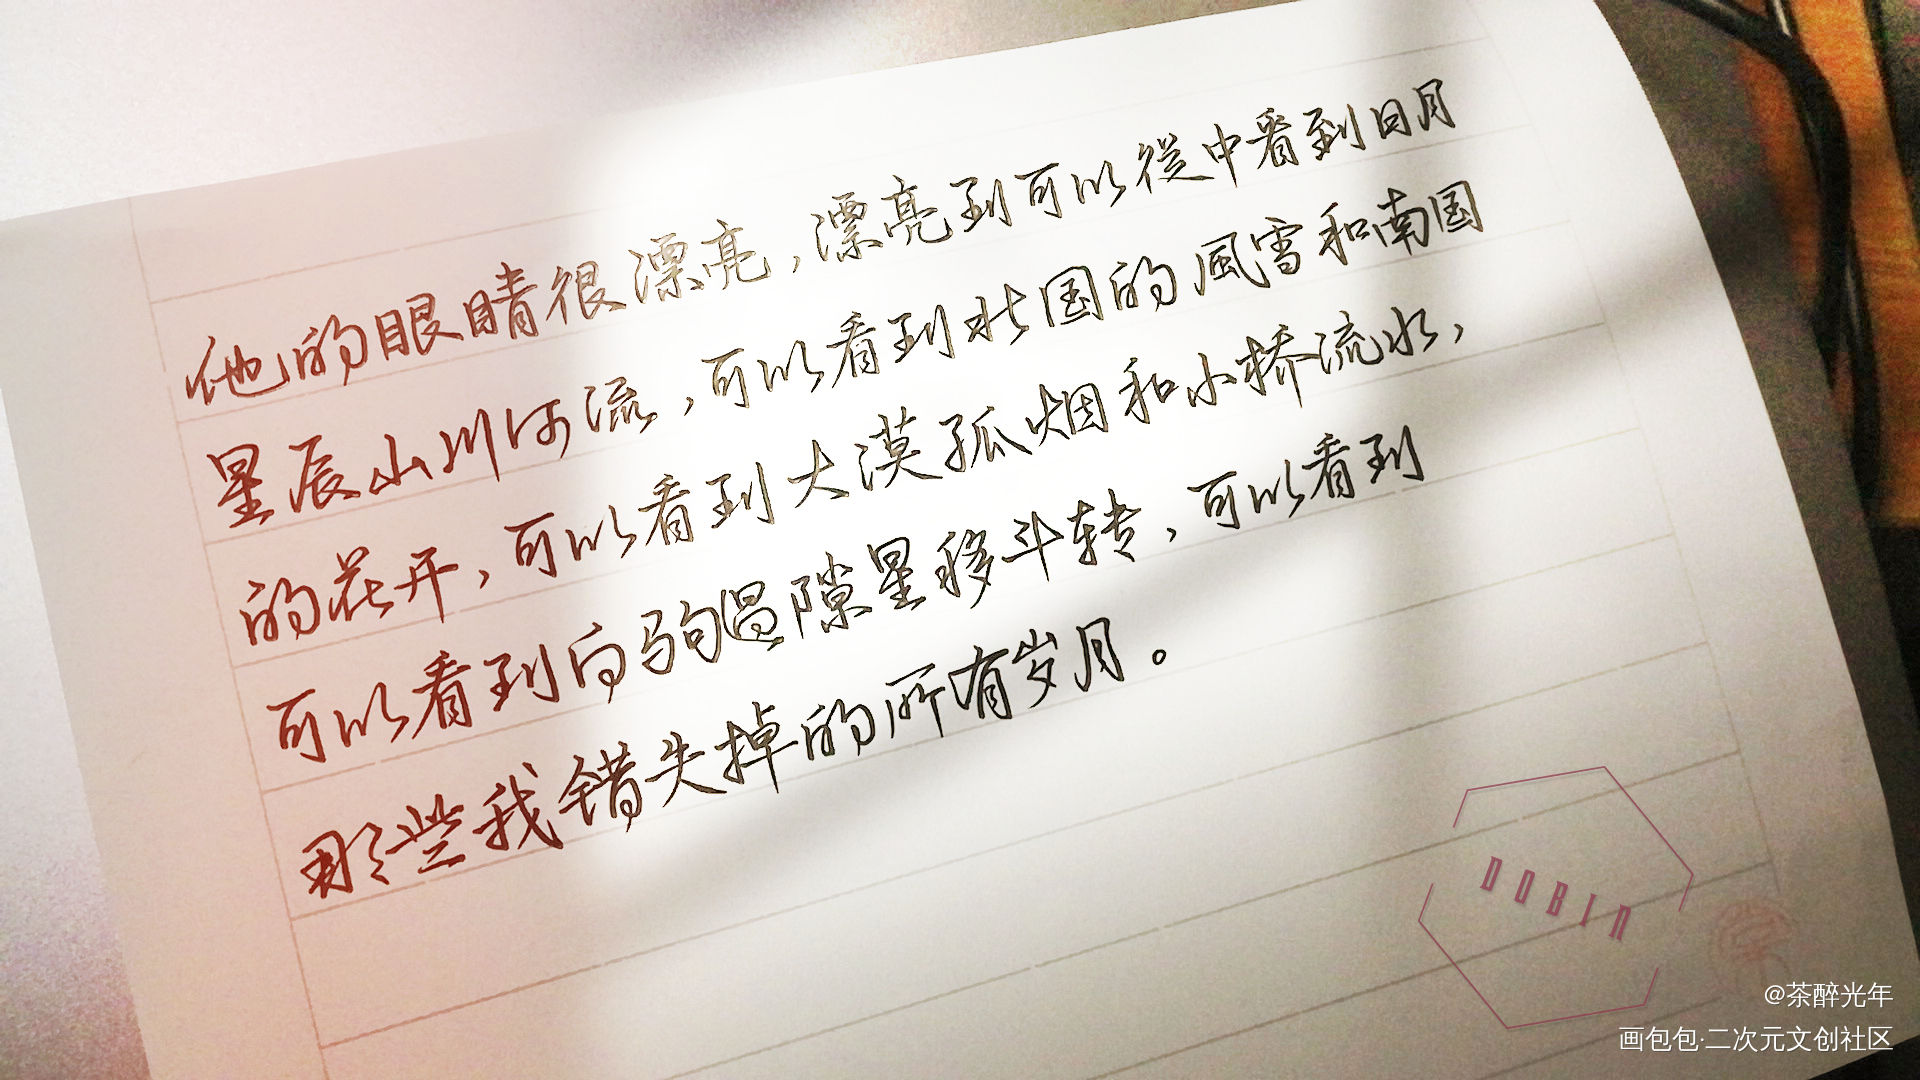 他的眼睛很漂亮,漂亮到可以從中看到日月
星辰山川河流,可以看到北国的風雪和南国
的花开,可以看到大漠孤烟和小桥流水,
可以看到白驹過隙星移斗转,可以看到
那些我错失掉的所有岁月。
DOBIN
@茶醉光年
画包包·二次元文创社区